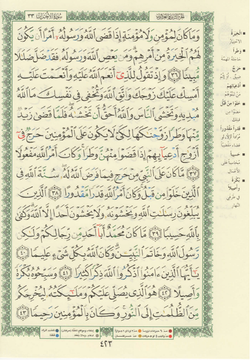 وَمَا كَانَ لِمُؤْمِنٍ وَلَا مُؤْمِنَةٍ إِذَا قَضَى ٱللَّهُ وَرَسُولُهُۥٓ أَمْرًا أَن يَكُونَ
لَهُمُ ٱلْخِيَرَةُ مِنْ أَمْرِهِمْ وَمَن يَعْصِ ٱللَّهَ وَرَسُولَهُۥ فَقَدْ ضَلَّ ضَلَٰلًا
مُّبِينًا ٣٦ وَإِذْ تَقُولُ لِلَّذِىٓ أَنْعَمَ ٱللَّهُ عَلَيْهِ وَأَنْعَمْتَ عَلَيْهِ
أَمْسِكْ عَلَيْكَ زَوْجَكَ وَٱتَّقِ ٱللَّهَ وَتُخْفِى فِى نَفْسِكَ مَا ٱللَّهُ
مُبْدِيهِ وَتَخْشَى ٱلنَّاسَ وَٱللَّهُ أَحَقُّ أَن تَخْشَىٰهُ فَلَمَّا قَضَىٰ زَيْدٌ
مِّنْهَا وَطَرًا زَوَّجْنَٰكَهَا لِكَىْ لَا يَكُونَ عَلَى ٱلْمُؤْمِنِينَ حَرَجٌ فِىٓ
أَزْوَٰجِ أَدْعِيَآئِهِمْ إِذَا قَضَوْا۟ مِنْهُنَّ وَطَرًا وَكَانَ أَمْرُ ٱللَّهِ مَفْعُولًا
٣٧ مَّا كَانَ عَلَى ٱلنَّبِىِّ مِنْ حَرَجٍ فِيمَا فَرَضَ ٱللَّهُ لَهُۥ سُنَّةَ ٱللَّهِ فِى
ٱلَّذِينَ خَلَوْا۟ مِن قَبْلُ وَكَانَ أَمْرُ ٱللَّهِ قَدَرًا مَّقْدُورًا ٣٨ ٱلَّذِينَ
يُبَلِّغُونَ رِسَٰلَٰتِ ٱللَّهِ وَيَخْشَوْنَهُۥ وَلَا يَخْشَوْنَ أَحَدًا إِلَّا ٱللَّهَ وَكَفَىٰ
بِٱللَّهِ حَسِيبًا ٣٩ مَّا كَانَ مُحَمَّدٌ أَبَآ أَحَدٍ مِّن رِّجَالِكُمْ وَلَٰكِن
رَّسُولَ ٱللَّهِ وَخَاتَمَ ٱلنَّبِيِّـۧنَ وَكَانَ ٱللَّهُ بِكُلِّ شَىْءٍ عَلِيمًا ٤٠
يَٰٓأَيُّهَا ٱلَّذِينَ ءَامَنُوا۟ ٱذْكُرُوا۟ ٱللَّهَ ذِكْرًا كَثِيرًا ٤١ وَسَبِّحُوهُ بُكْرَةً
وَأَصِيلًا ٤٢ هُوَ ٱلَّذِى يُصَلِّى عَلَيْكُمْ وَمَلَٰٓئِكَتُهُۥ لِيُخْرِجَكُم
مِّنَ ٱلظُّلُمَٰتِ إِلَى ٱلنُّورِ وَكَانَ بِٱلْمُؤْمِنِينَ رَحِيمًا ٤٣
٤٢٣